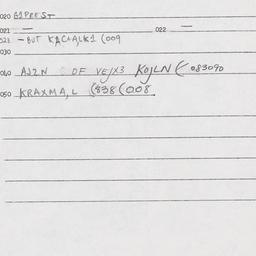 020 G1PREST
021 — 022 —
023 - BUT KACAALK1 (009
030
040 AJ2N OF VEJX3 KOJLN (083090
050 KRAXMA,L (838(008